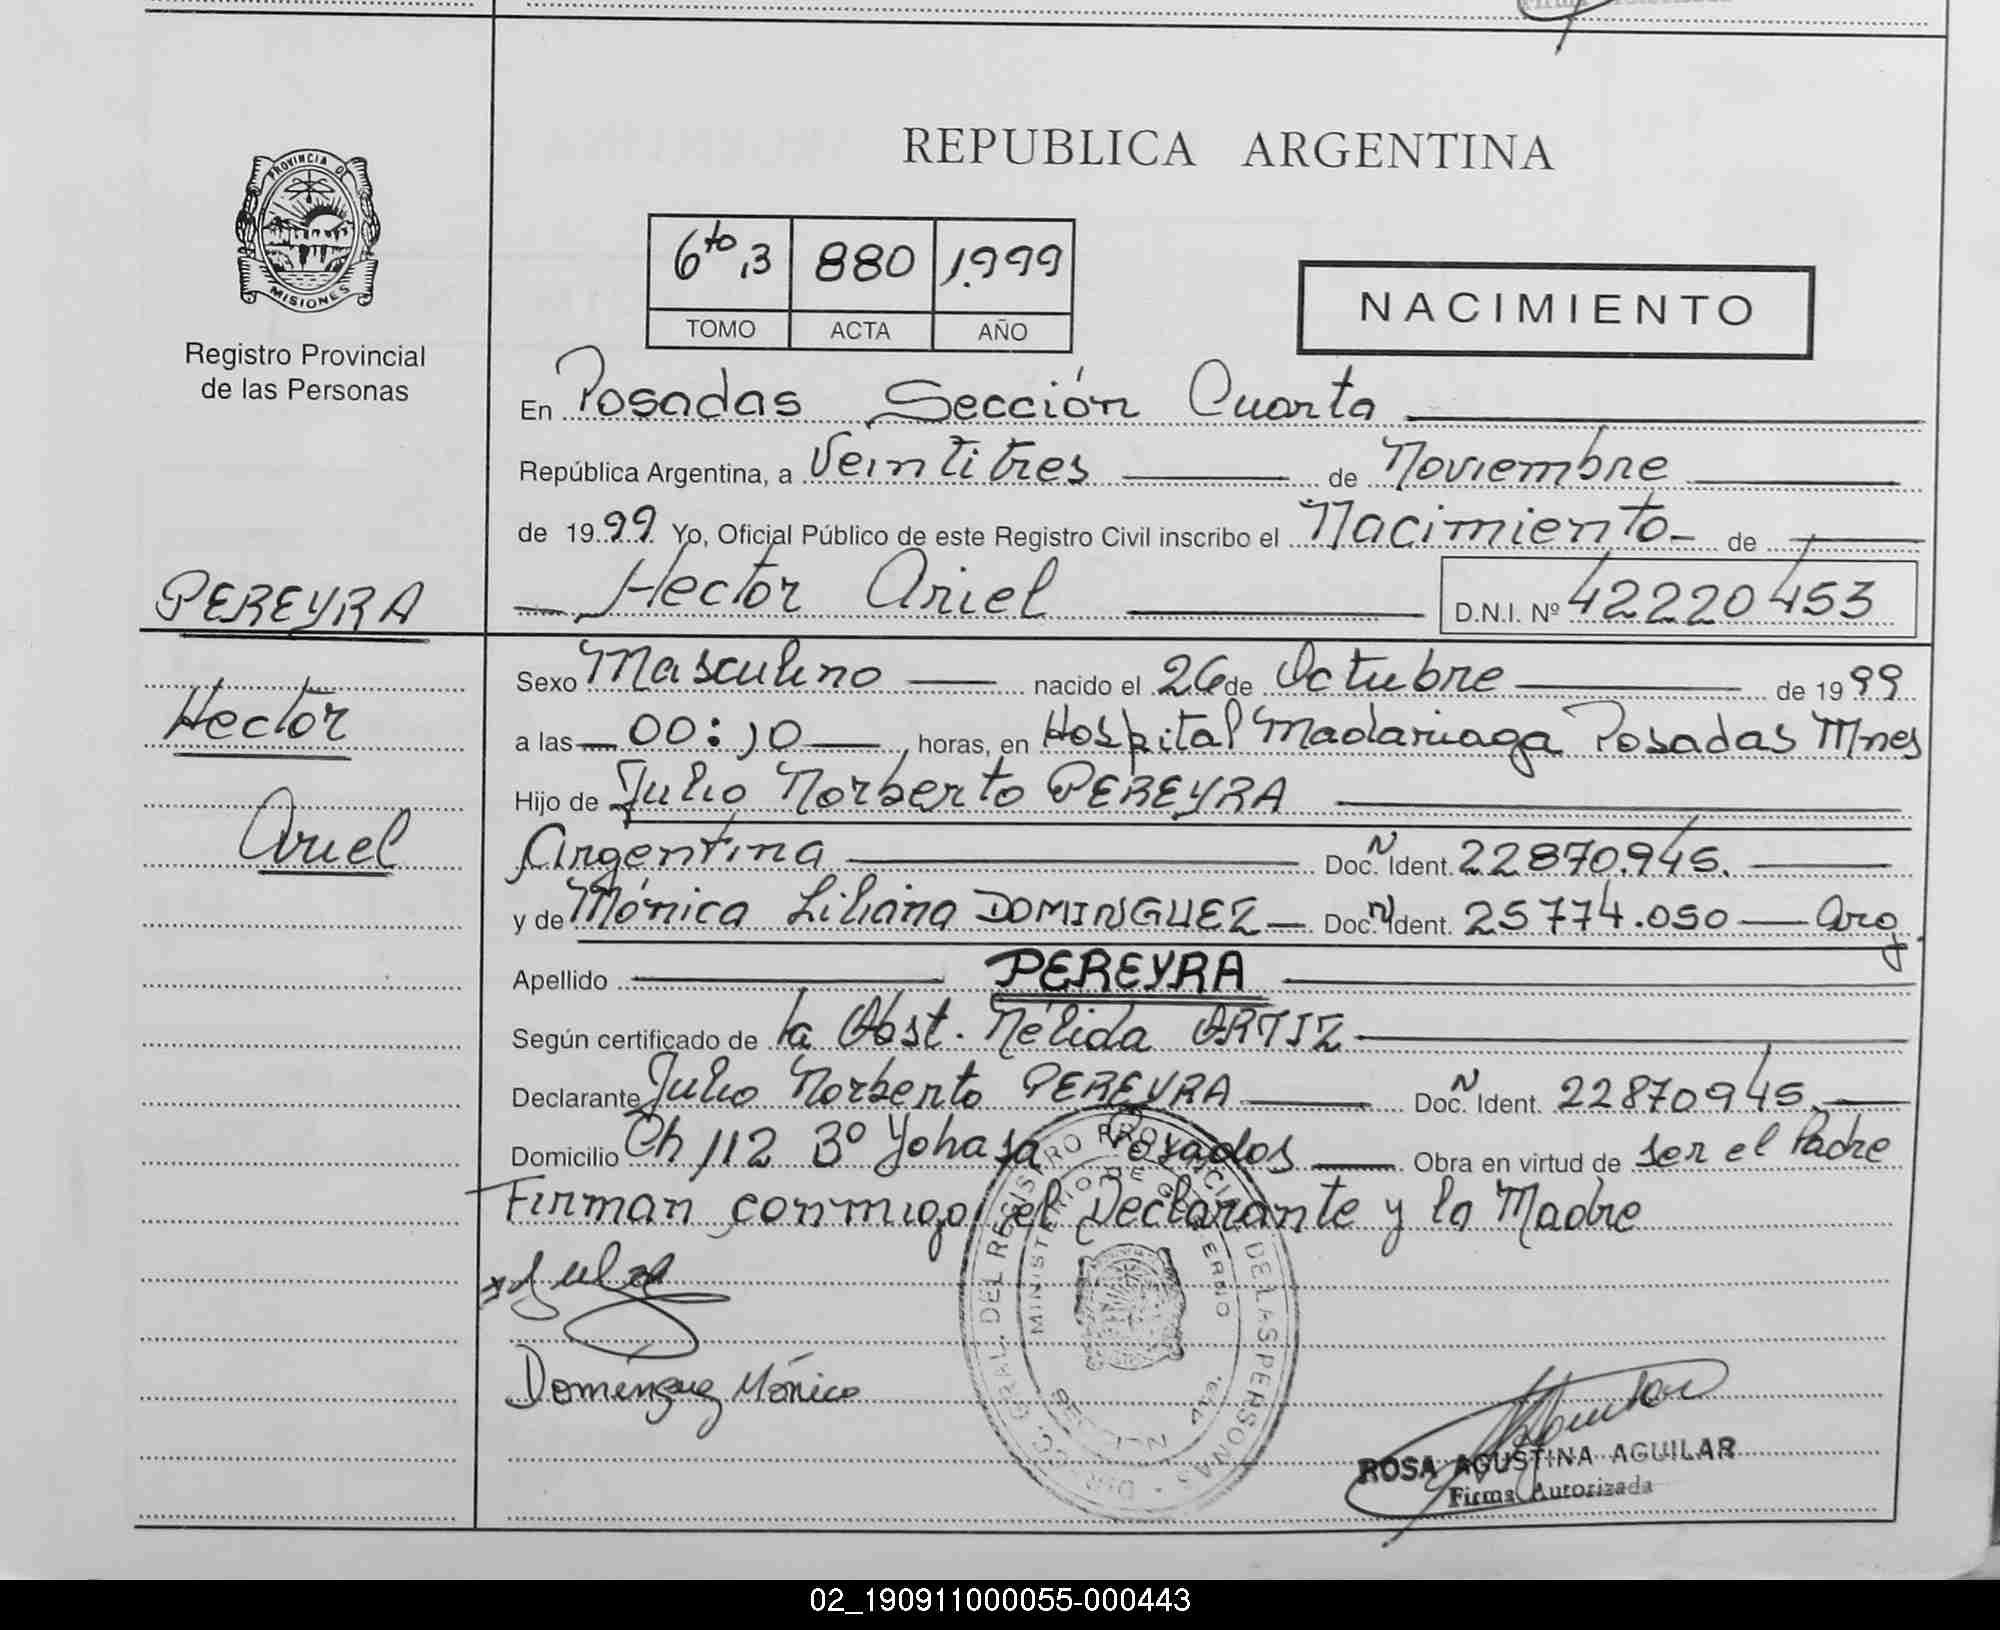 REPUBLICA ARGENTINA
PROVINCIA DE
MISIONES
Registro Provincial
de las Personas
6to 13 880 1.999
TOMO ACTA AÑO
NACIMIENTO
En Posadas Sección Cuarta
República Argentina, a Veintitres de Noviembre
de 1999 Yo, Oficial Público de este Registro Civil inscribo el Nacimiento de
Hector Ariel D.N.I. Nº 42220453
PEREYRA
Hector
Ariel
Sexo Masculino nacido el 26 de Octubre de 1999
a las 00:10 horas, en Hospital Madariaga Posadas Mnes
Hijo de Julio Norberto PEREYRA
Argentina Doc. N Ident. 22870.945.
y de Mónica Liliana DOMINGUEZ Doc. N Ident. 25774.050 Arg.
Apellido PEREYRA
Según certificado de la Obst. Nélida ORTIZ
Declarante Julio Norberto PEREYRA Doc. N Ident. 22870945.
Domicilio Ch 112 Bº Yohasa Posadas Obra en virtud de ser el Padre
Firman conmigo el Declarante y la Madre
Domenguez Mónica
DIREC. GRAL. DEL REGISTRO PROVINCIAL DE LAS PERSONAS
MINISTERIO DE GOBIERNO
ROSA AGUSTINA AGUILAR
Firma Autorizada
02_190911000055-000443